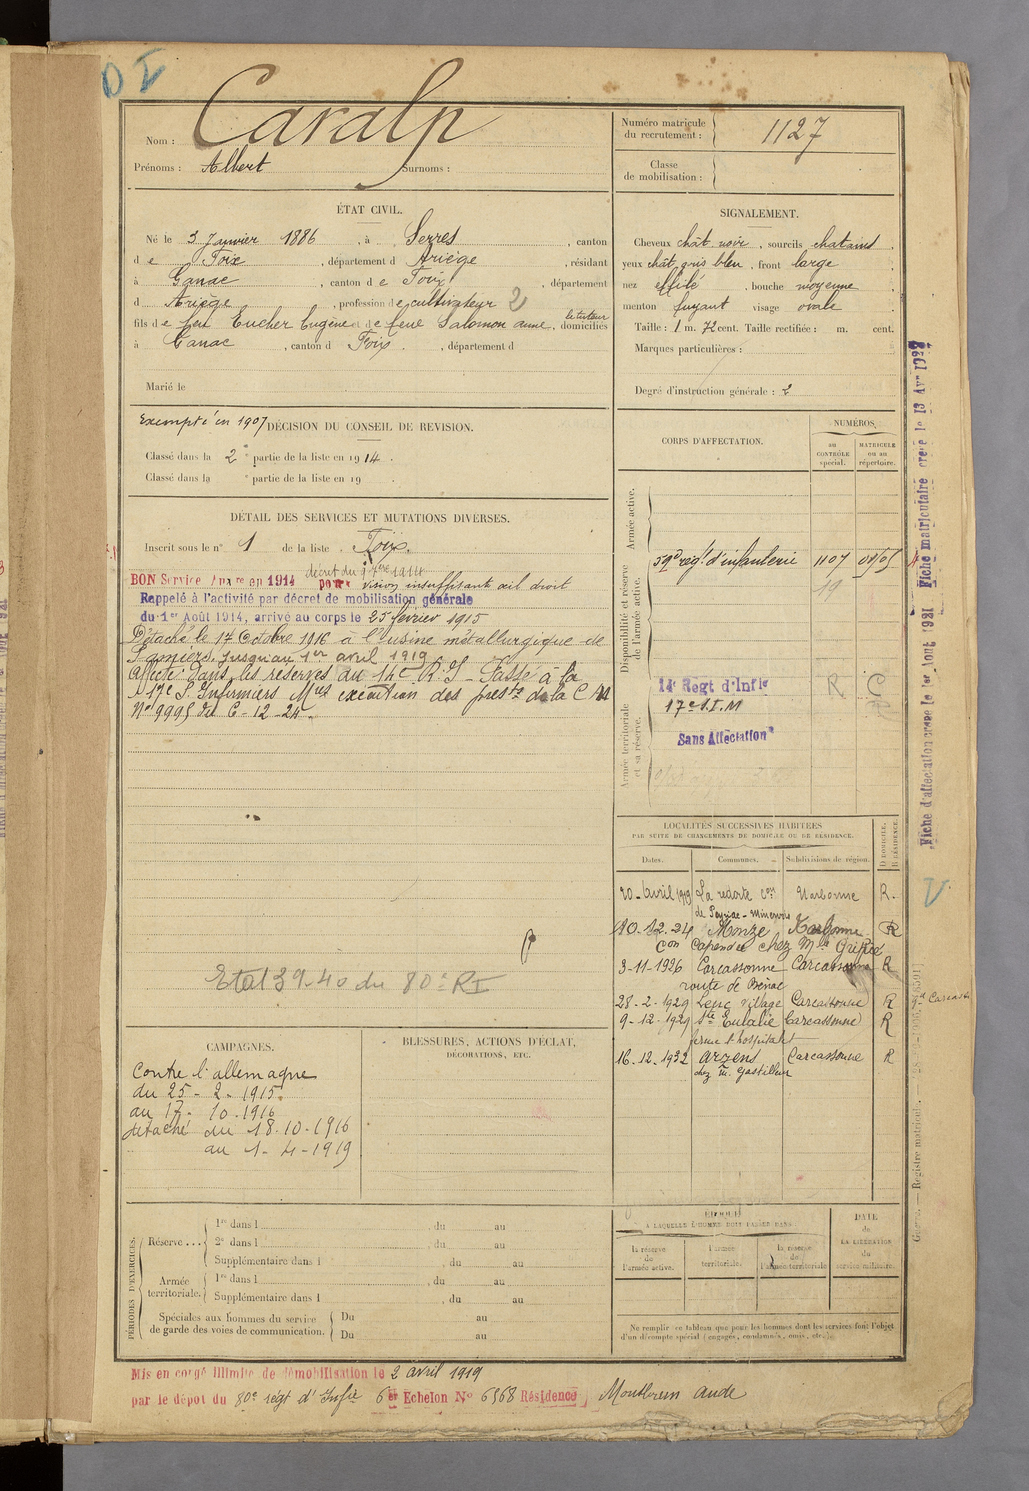 D I
Nom : Caralp
Prénoms : Albert Surnoms :
Numéro matricule du recrutement : 1127
Classe de mobilisation :
ÉTAT CIVIL.
Né le 3 Janvier 1886, à Serres, canton
de Foix, département d Ariège, résidant
à Ganac, canton de Foix, département
d Ariège, profession de cultivateur 2
fils de feu Eucher Eugène et de feue Salomon anne, le tuteur domiciliés
à Ganac, canton d Foix, département d
Marié le
SIGNALEMENT.
Cheveux chât noir, sourcils chatains
yeux chât gris bleu, front large
nez effilé, bouche moyenne
menton fuyant visage ovale
Taille : 1 m. 72 cent. Taille rectifiée : m. cent.
Marques particulières :
Degré d'instruction générale : 2
Exempté en 1907 DÉCISION DU CONSEIL DE REVISION.
Classé dans la 2e partie de la liste en 1914.
Classé dans la e partie de la liste en 19
DÉTAIL DES SERVICES ET MUTATIONS DIVERSES.
Inscrit sous le n° 1 de la liste Foix.
décret du 9 7bre 1914
BON Service Auxre en 1914 pour vision insuffisante œil droit
Rappelé à l'activité par décret de mobilisation générale
du 1er Août 1914, arrivé au corps le 25 février 1915
Détaché le 17 Octobre 1916 à l'usine métallurgique de
Pamiers, jusqu'au 1er avril 1919
Affecté dans les réserves au 14e R.I - Passé à la
17e S. Infirmiers Mres exécution des prests de la C M
N° 9995 du 6-12-24.
Etat 39-40 du 80e RI
CORPS D'AFFECTATION.
NUMÉROS,
au CONTRÔLE spécial.
MATRICULE ou au répertoire.
Armée active.
Disponibilité et réserve de l'armée active.
59e régt d'infanterie 1107
19
14e Régt d'Infie R
17e S.I.M
Sans Affectation
Armée territoriale et sa réserve.
LOCALITÉS SUCCESSIVES HABITÉES
PAR SUITE DE CHANGEMENTS DE DOMICILE OU DE RÉSIDENCE.
Dates. Communes. Subdivisions de région. D DOMICILE. R RÉSIDENCE.
20-Avril 1919 La redorte Con Narbonne R.
de Peyriac-Minervois
10-12-24 Monze Narbonne R
Con Capendu chez Mr
3-11-1926 Carcassonne Carcassonne R
route de
28-2-1929 Leuc Village Carcassonne R
9-12-1929 Ste Eulalie Carcassonne R
ferme l'hospitalet
16-12-1932 Arzens Carcassonne R
chez M. Gastilleur
CAMPAGNES.
Contre l'allemagne
du 25-2-1915
au 17-10-1916
détaché du 18-10-1916
au 1-4-1919
BLESSURES, ACTIONS D'ÉCLAT,
DÉCORATIONS, ETC.
PÉRIODES D'EXERCICES.
Réserve ...
1re dans l du au
2e dans l du au
Supplémentaire dans l du au
Armée territoriale.
1re dans l du au
Supplémentaire dans l du au
Spéciales aux hommes du service de garde des voies de communication.
Du au
Du au
ÉPOQUE
A LAQUELLE L'HOMME DOIT PASSER DANS
la réserve de l'armée active.
l'armée territoriale.
la réserve de l'armée territoriale
DATE de LA LIBÉRATION du service militaire.
Ne remplir ce tableau que pour les hommes dont les services font l'objet
d'un décompte spécial (engagés, condamnés, omis, etc.).
Mis en congé illimité de démobilisation le 2 avril 1919
par le dépôt du 80e régt d'Infie 6e Echelon N° 6568 Résidence Montbrun aude
Fiche d'affectation créée le 1er Août 1921
Fiche matriculaire créée le 13 Avr 192
V
Registre matricule.